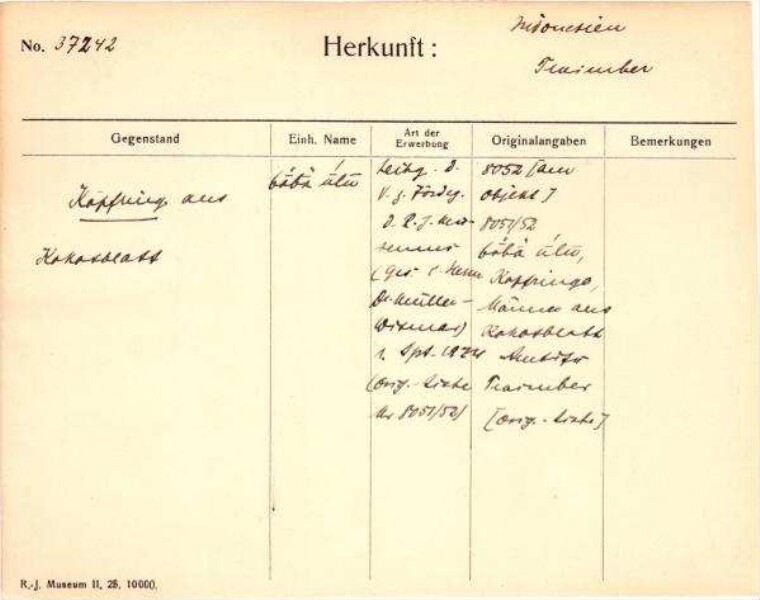 No. 37242
Herkunft:
Indonesien
Tanimber
Gegenstand
Einh. Name
Art der Erwerbung
Originalangaben
Bemerkungen
Kopfring aus
Kokosblatt
Leihg. d.
V. z. Förderg.
D. R. J. Mu-
seums
(Ges. v. Herrn
Dr. Müller-
Wismar)
1. Spt. 1924
(Orig.-Liste
Nr 8051/52)
8052 [am
Objekt]
8051/52
Kopfringe,
Männer aus
Kokosblatt
Tanimber
[Orig.-Liste]
R.-J. Museum II, 25, 10000.